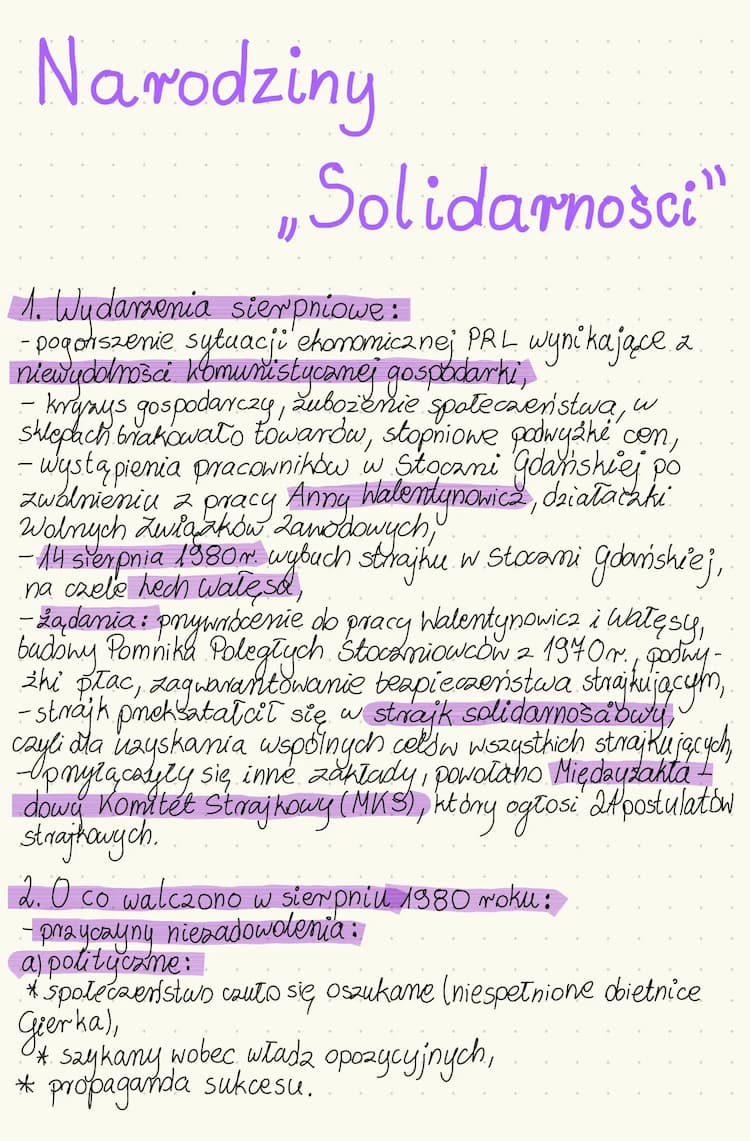 Narodziny
„Solidarności”
1. Wydarzenia sierpniowe:
- pogorszenie sytuacji ekonomicznej PRL wynikające z
niewydolności komunistycznej gospodarki,
- kryzys gospodarczy, zubożenie społeczeństwa, w
sklepach brakowało towarów, stopniowe podwyżki cen,
- wystąpienia pracowników w Stoczni Gdańskiej po
zwolnieniu z pracy Anny Walentynowicz, działaczki
Wolnych Związków Zawodowych,
- 14 sierpnia 1980r. wybuch strajku w Stoczni Gdańskiej,
na czele Lech Wałęsa,
- żądania: przywrócenie do pracy Walentynowicz i Wałęsy,
budowy Pomnika Poległych Stoczniowców z 1970r., podwy-
żki płac, zagwarantowanie bezpieczeństwa strajkującym,
- strajk przekształcił się w strajk solidarnościowy,
czyli dla uzyskania wspólnych celów wszystkich strajkujących,
- przyłączyły się inne zakłady, powołano Międzyzakła-
dowy Komitet Strajkowy (MKS), który ogłosi 21 postulatów
strajkowych.
2. O co walczono w sierpniu 1980 roku:
- przyczyny niezadowolenia:
a) polityczne:
* społeczeństwo czuło się oszukane (niespełnione obietnice
Gierka),
* szykany wobec władz opozycyjnych,
* propaganda sukcesu.